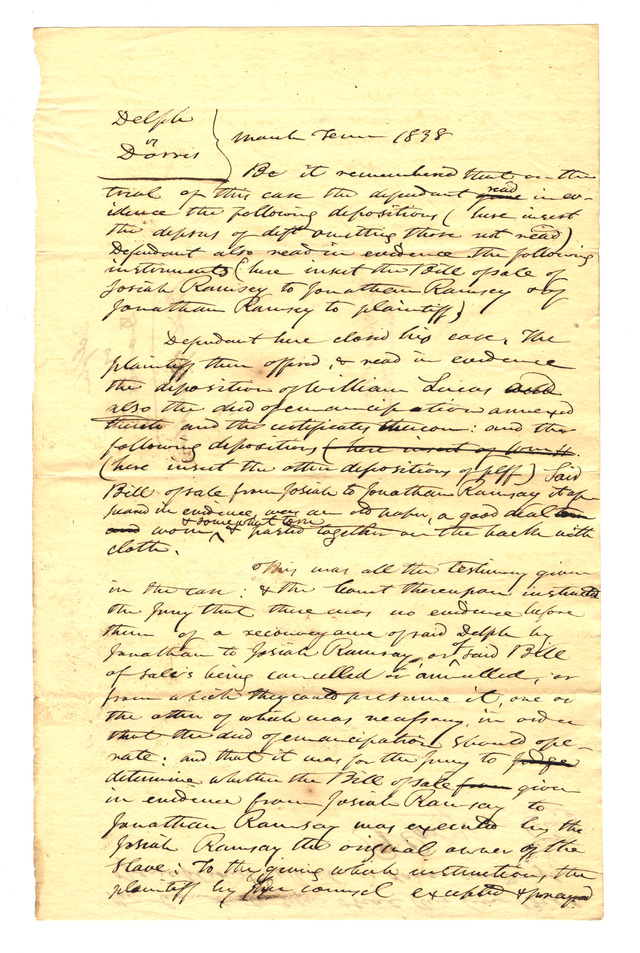 Delph
vs
Dorris
March Term 1838
Be it remembered that on the
trial of this case the defendant read in ev-
idence the following depositions (here insert
the deposns of deft omitting those not read)
Defendant also read in evidence the following
instruments (here insert the Bill of sale of
Josiah Ramsey to Jonathan Ramsey &
Jonathan Ramsey to plaintiff)
Defendant here closed his case. The
plaintiff then offered, & read in evidence
the deposition of William Lucas
also the deed of emancipation annexed
thereto and the certificates thereon: and the
following depositions (here insert of
(here insert the other depositions of plff) Said
Bill of sale from Josiah to Jonathan Ramsay it ap
peared in evidence, was an old paper, a good deal
and worn, & somewhat torn & pasted together on the back with
cloth.
This was all the testimony given
in the case: & the Court thereupon instructed
the Jury that there was no evidence before
them of a reconveyance of said Delph by
Jonathan to Josiah Ramsay, or said Bill
of sale's being cancelled or annulled, or
from which they could presume it, one or
the other of which was necessary, in order
that the deed of emancipation should ope-
rate: and that it was for the Jury to judge
determine whether the Bill of sale from given
in evidence from Josiah Ramsay to
Jonathan Ramsay was executed by the
Josiah Ramsay the original owner of the
slave: To the giving which instruction, the
plaintiff by her counsel excepted & prayed